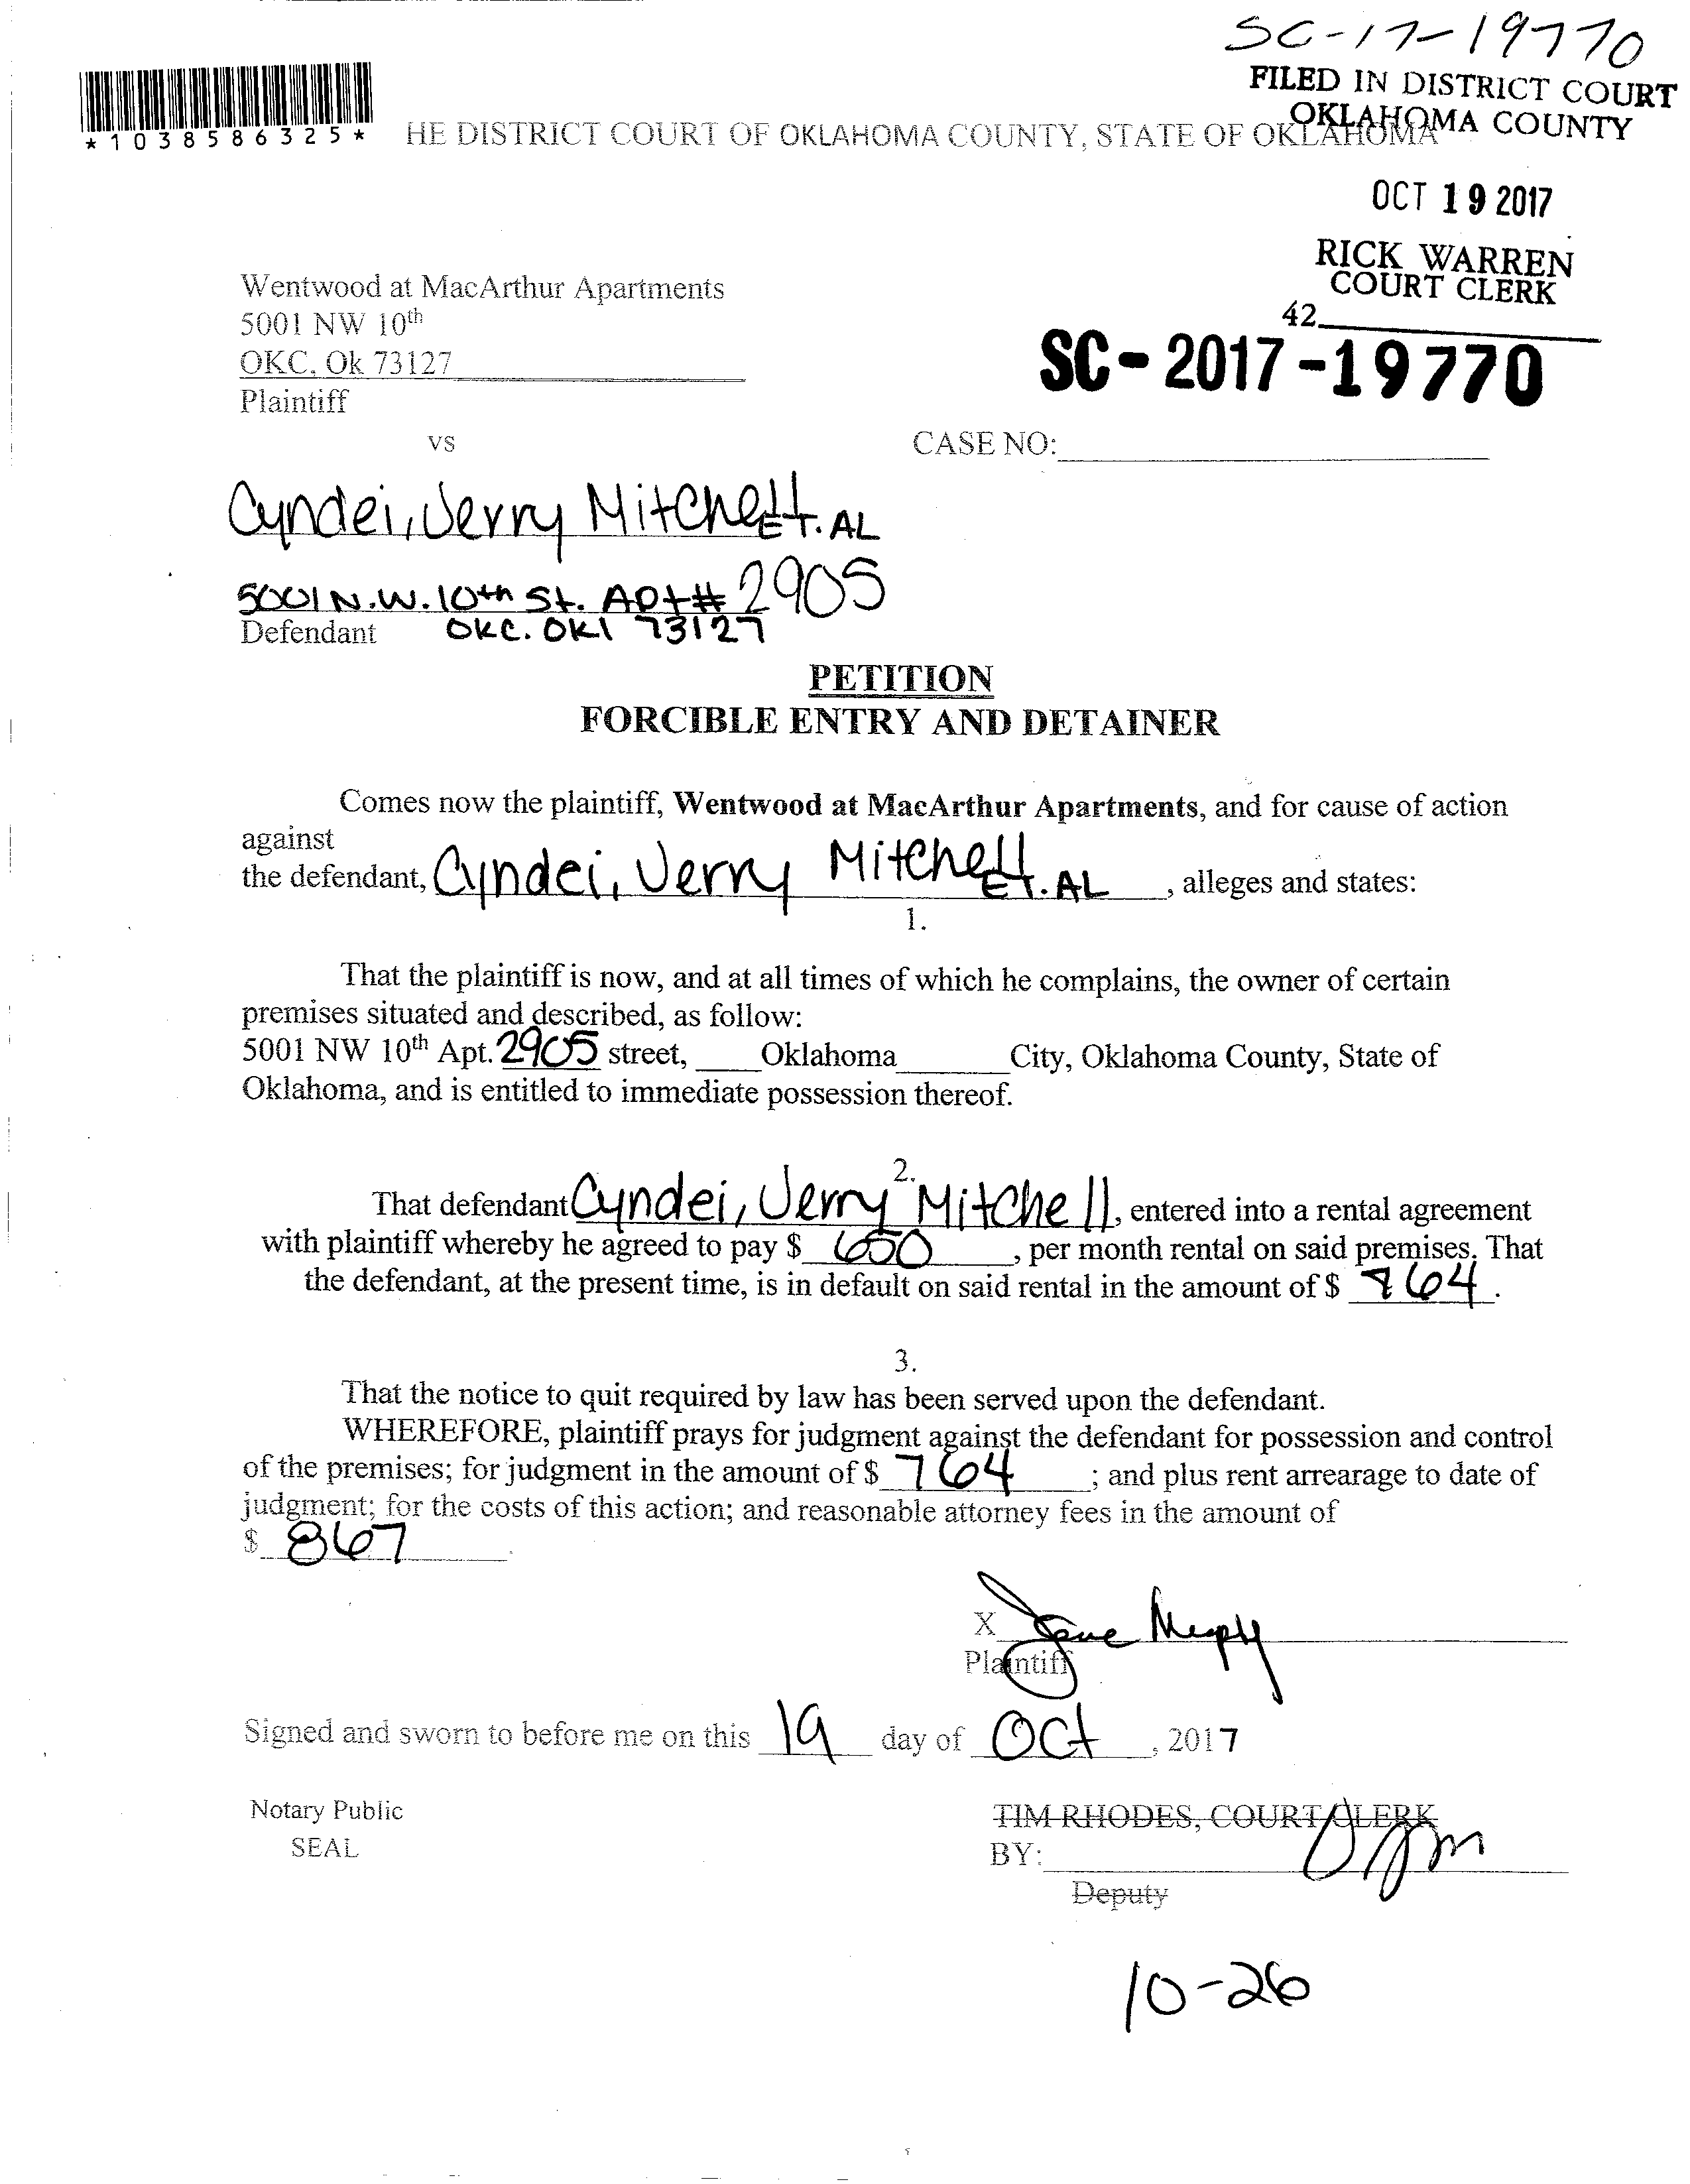 SC-17-19770
FILED IN DISTRICT COURT
OKLAHOMA COUNTY
*1038586325*
HE DISTRICT COURT OF OKLAHOMA COUNTY, STATE OF OKLAHOMA
OCT 19 2017
RICK WARREN
COURT CLERK
42
SC-2017-19770
Wentwood at MacArthur Apartments
5001 NW 10th
OKC, Ok 73127
Plaintiff
vs
CASE NO:
Cyndei, Jerry Mitchell ET.AL
5001 N.W. 10th St. Apt# 2905
Defendant OKC. OKl 73127
PETITION
FORCIBLE ENTRY AND DETAINER
Comes now the plaintiff, Wentwood at MacArthur Apartments, and for cause of action
against
the defendant, Cyndei, Jerry Mitchell ET.AL, alleges and states:
1.
That the plaintiff is now, and at all times of which he complains, the owner of certain
premises situated and described, as follow:
5001 NW 10th Apt. 2905 street, Oklahoma City, Oklahoma County, State of
Oklahoma, and is entitled to immediate possession thereof.
2.
That defendant Cyndei, Jerry Mitchell, entered into a rental agreement
with plaintiff whereby he agreed to pay $ 650, per month rental on said premises. That
the defendant, at the present time, is in default on said rental in the amount of $ 764.
3.
That the notice to quit required by law has been served upon the defendant.
WHEREFORE, plaintiff prays for judgment against the defendant for possession and control
of the premises; for judgment in the amount of $ 764; and plus rent arrearage to date of
judgment; for the costs of this action; and reasonable attorney fees in the amount of
$ 867.
X
Plaintiff
Signed and sworn to before me on this 19 day of Oct, 2017
Notary Public
SEAL
TIM RHODES, COURT CLERK
BY:
Deputy
10-26